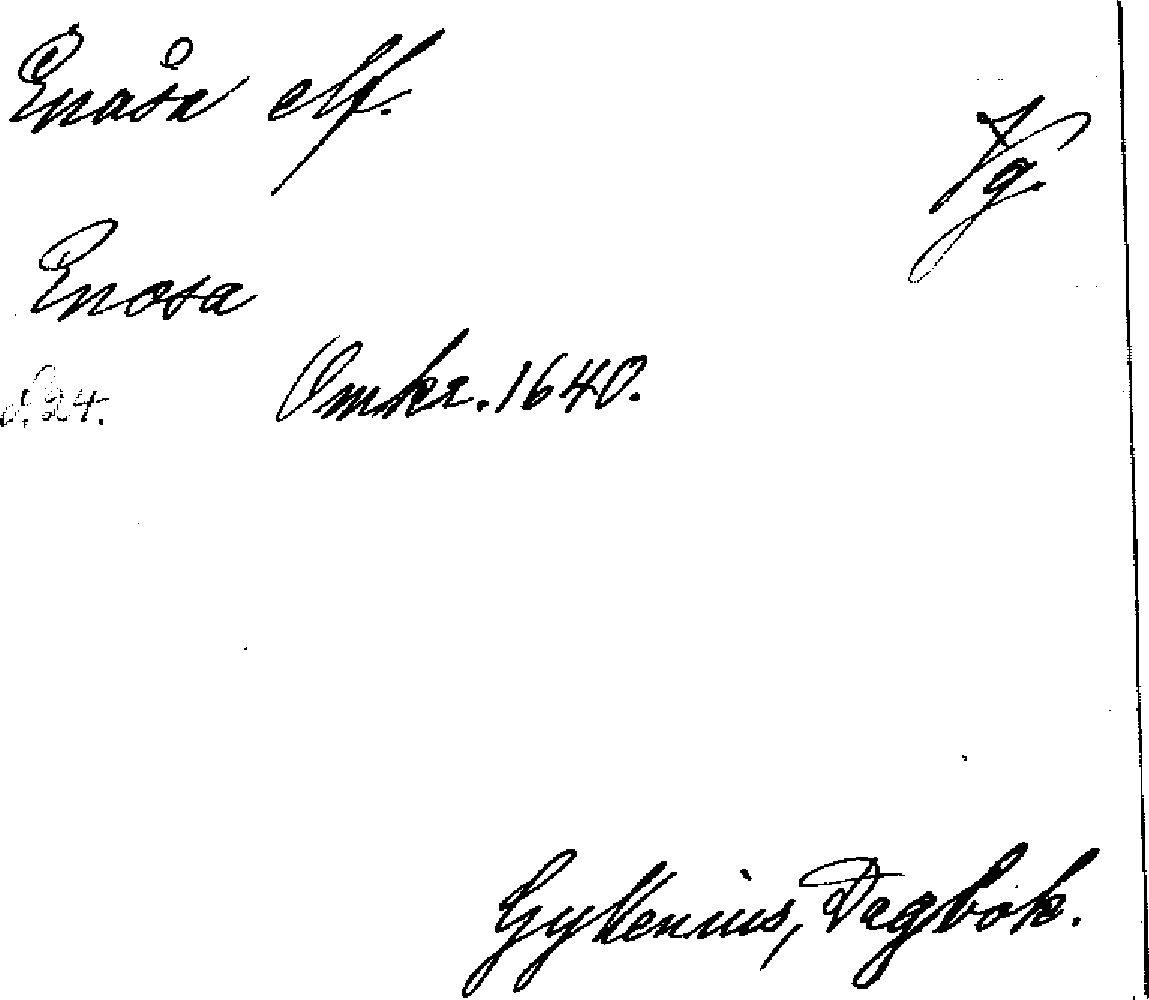 Enåsa elf.
Vg.
Enosa
s. 24. Omkr. 1640.
Gyllenius, Dagbok.